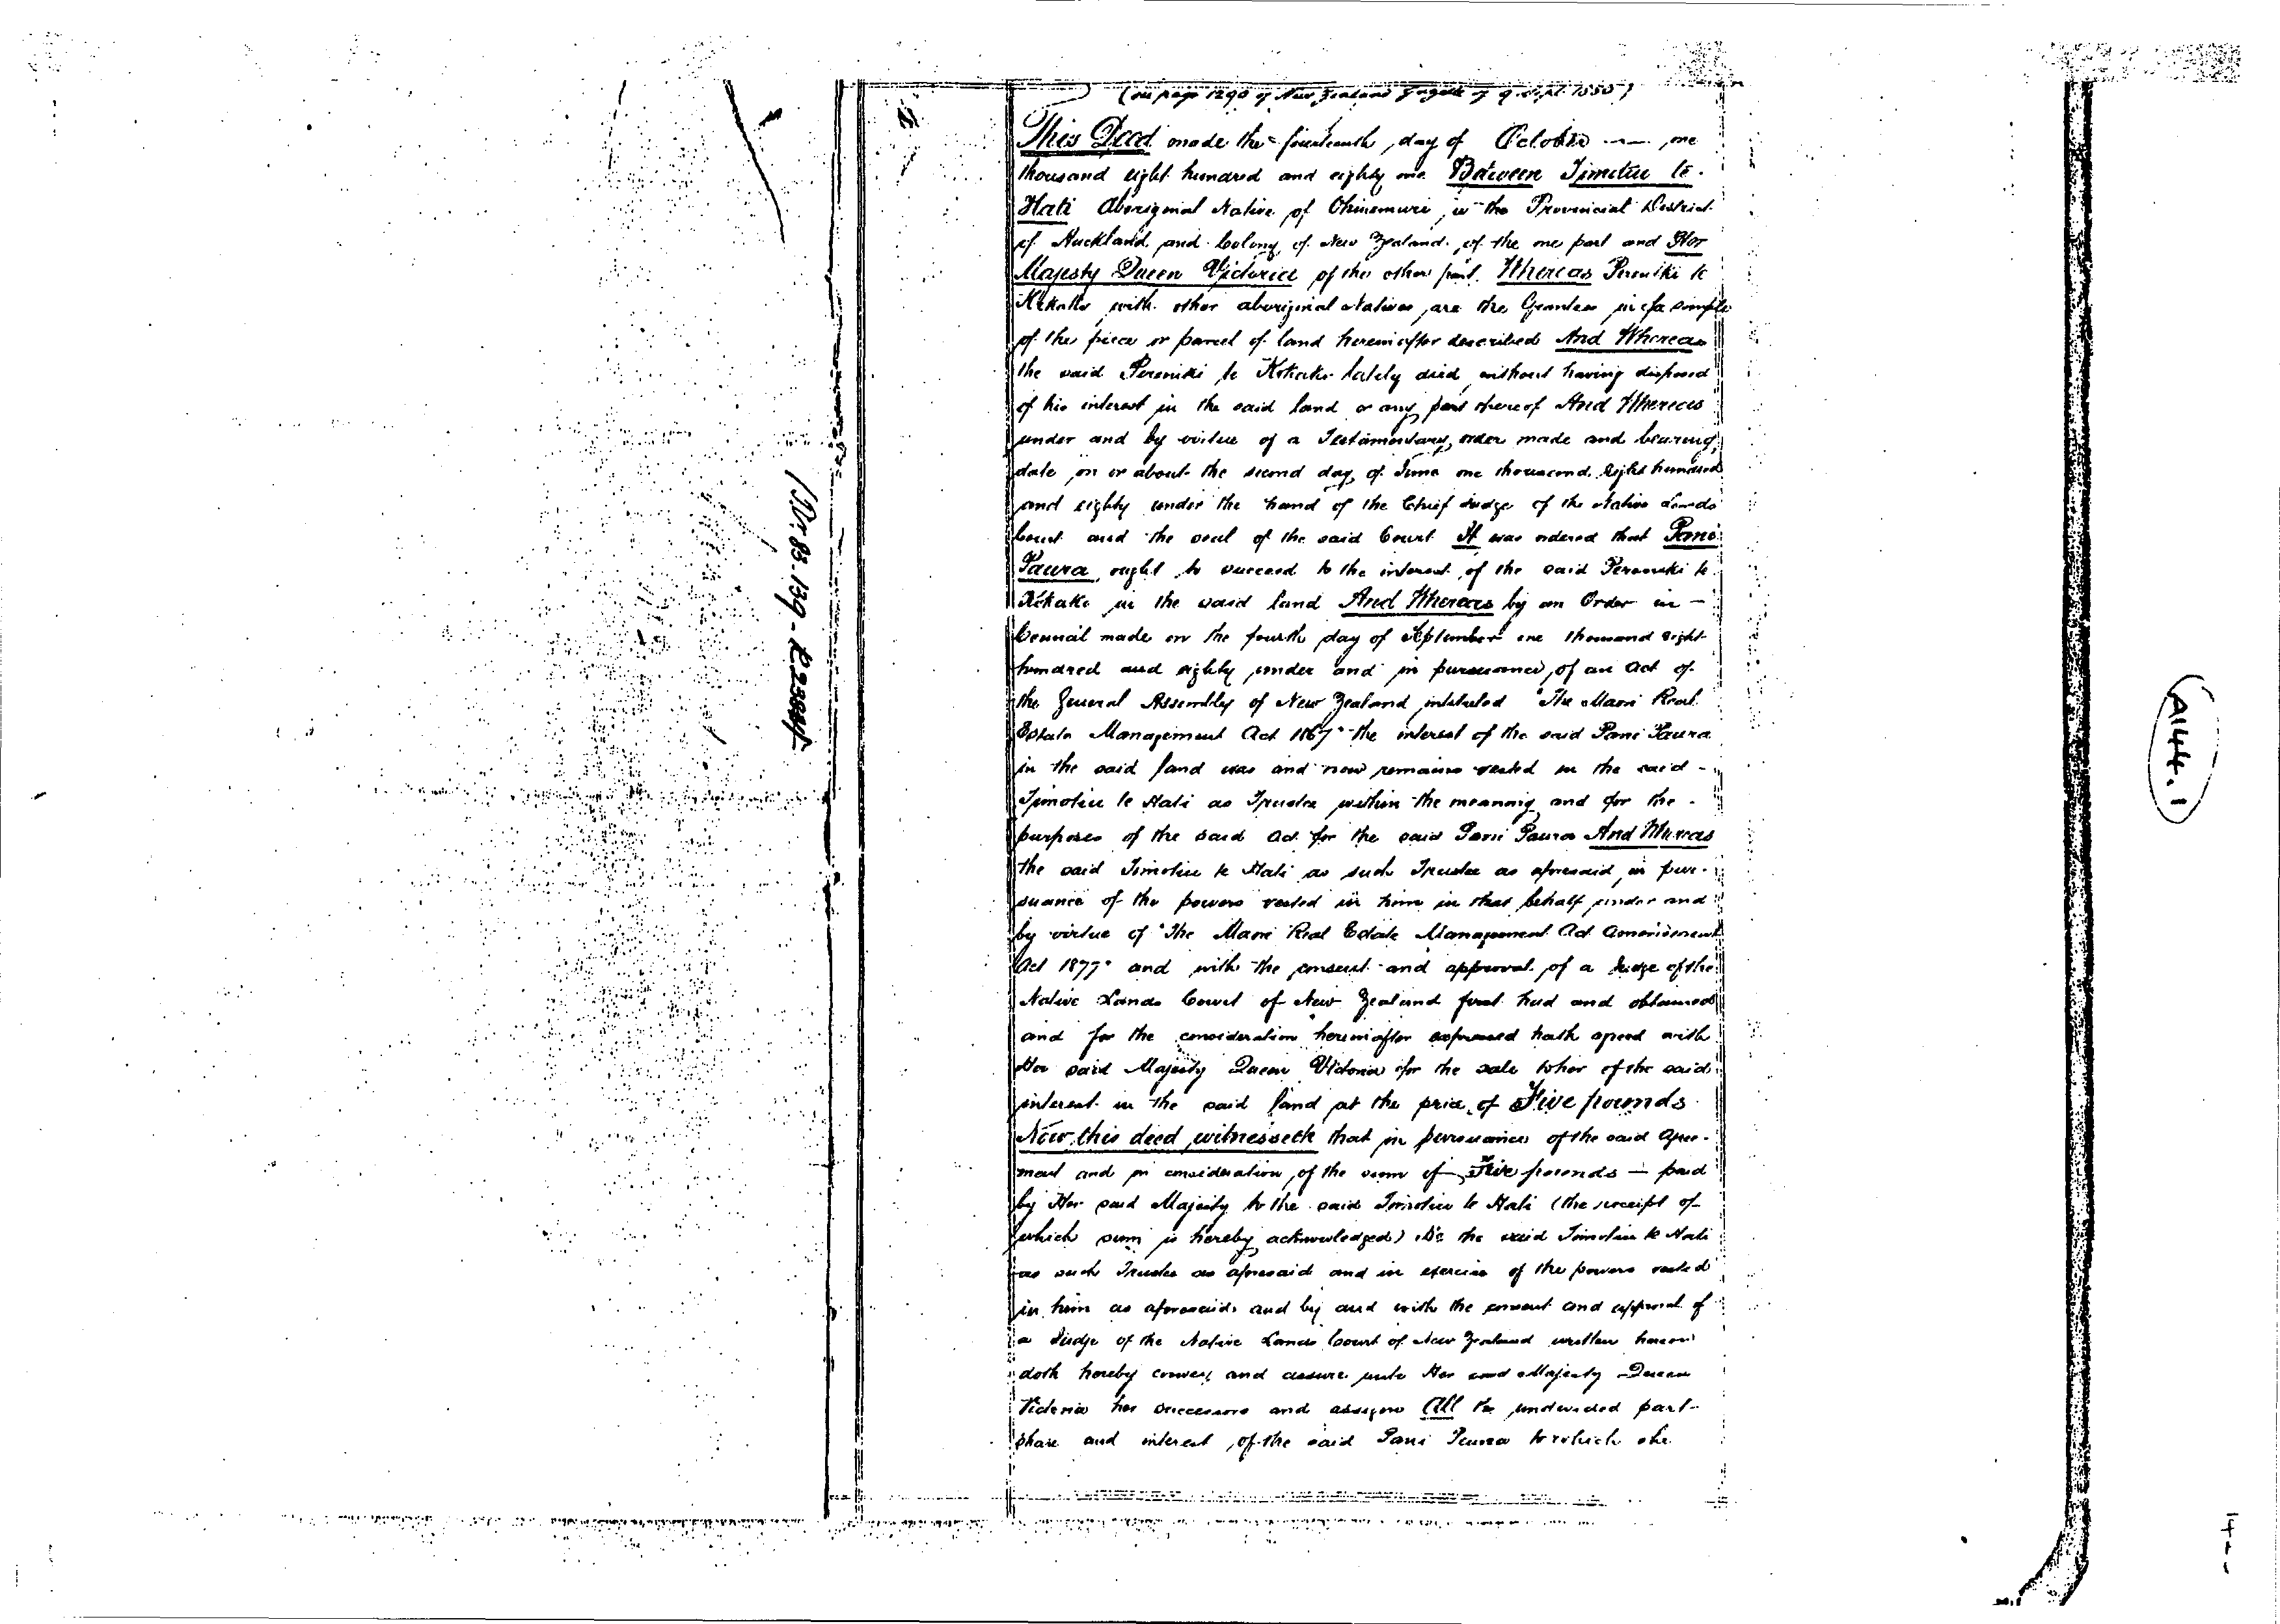 (see page 1290 of New Zealand Gazette of 9 Sept. 1880)
This Deed made the fourteenth day of October — one
thousand eight hundred and eighty one Between Timotiu te
Hati Aboriginal Native of Ohinemuri in the Provincial District
of Auckland and Colony of New Zealand of the one part and Her
Majesty Queen Victoria of the other part. Whereas Pereniki te
Kokako with other aboriginal Natives are the Grantees in fee simple
of the piece or parcel of land hereinafter described And Whereas
the said Pereniki te Kokako lately died without having disposed
of his interest in the said land or any part thereof And Whereas
under and by virtue of a Testamentary order made and bearing
date on or about the second day of June one thousand eight hundred
and eighty under the hand of the Chief Judge of the Native Lands
Court and the seal of the said Court It was ordered that Pani
Paura ought to succeed to the interest of the said Pereniki te
Kokako in the said land And Whereas by an Order in —
Council made on the fourth day of September one thousand eight
hundred and eighty under and in pursuance of an Act of
the General Assembly of New Zealand intituled "The Maori Real
Estate Management Act 1867" the interest of the said Pani Paura
in the said land was and now remains vested in the said -
Timotiu te Hati as Trustee within the meaning and for the -
purposes of the said Act for the said Pani Paura And Whereas
the said Timotiu te Hati as such Trustee as aforesaid in pur-
suance of the powers vested in him in that behalf under and
by virtue of "The Maori Real Estate Management Act Amendment
Act 1877" and with the consent and approval of a Judge of the
Native Lands Court of New Zealand first had and obtained
and for the consideration hereinafter expressed hath agreed with
Her said Majesty Queen Victoria for the sale to her of the said
interest in the said land at the price of Five pounds
Now this deed witnesseth that in pursuance of the said agree-
ment and in consideration of the sum of Five pounds — paid
by Her said Majesty to the said Timotiu te Hati (the receipt of
which sum is hereby acknowledged) He the said Timotiu te Hati
as such Trustee as aforesaid and in exercise of the powers vested
in him as aforesaid and by and with the consent and approval of
a Judge of the Native Lands Court of New Zealand written hereon
doth hereby convey and assure unto Her said Majesty Queen
Victoria her successors and assigns All the undivided part
share and interest of the said Pani Paura to which she
A144.1